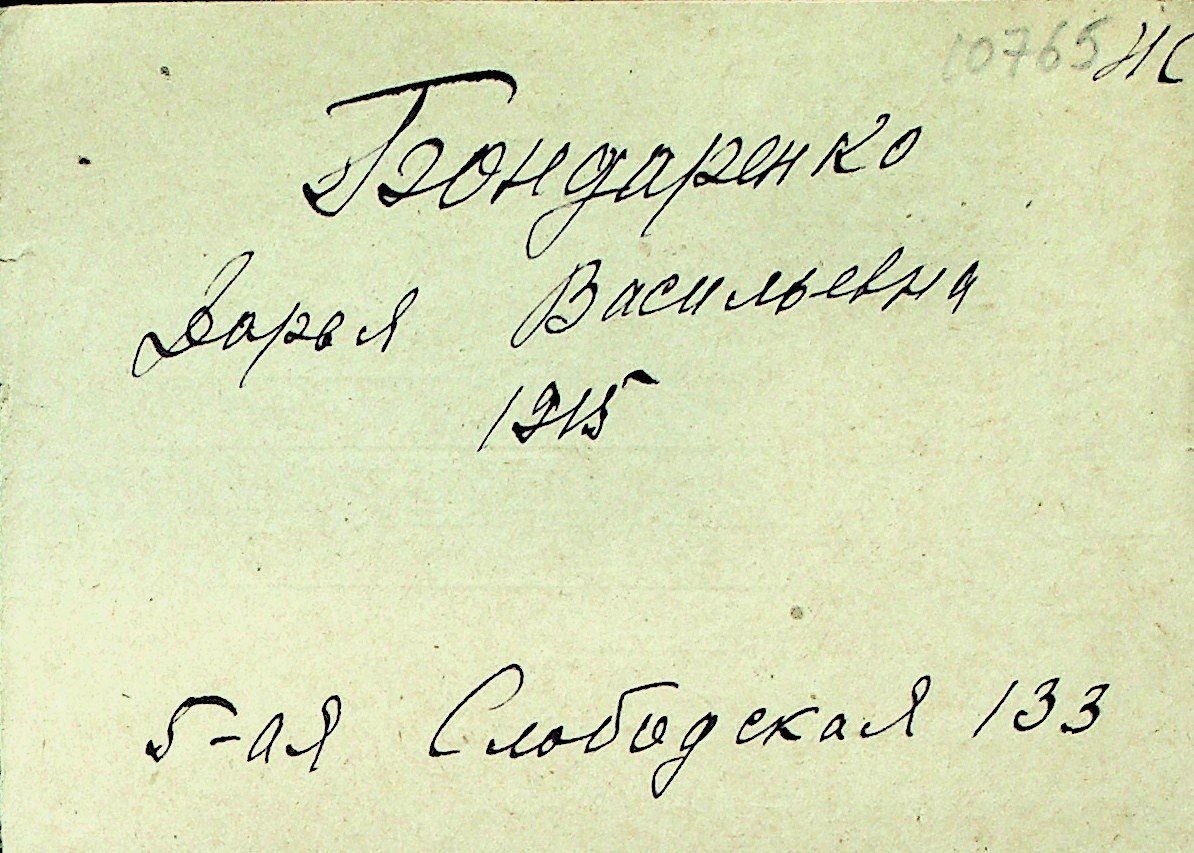 10765 НС
Бондаренко
Дарья Васильевна
1915
5-ая Слободская 133